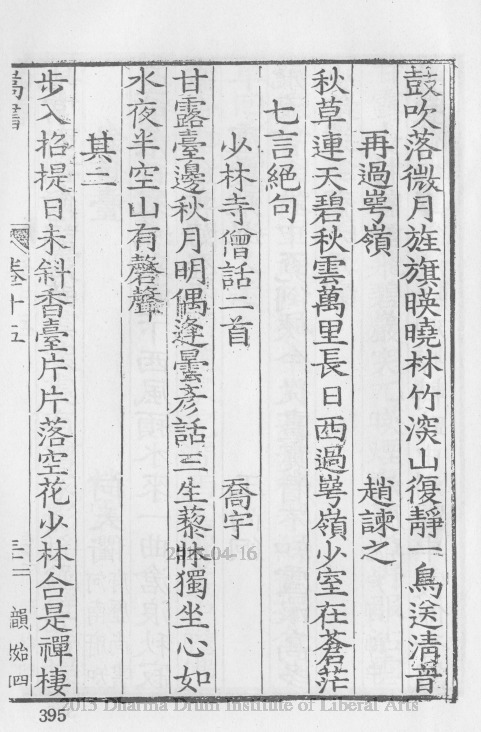 鼓吹落微月旌旗暎曉林竹深山復靜一鳥送清音
再過崿嶺 趙諫之
秋草連天碧秋雲萬里長日西過崿嶺少室在蒼茫
七言絕句
少林寺僧話二首 喬宇
甘露臺邊秋月明偶逢曇彥話三生藜牀獨坐心如
水夜半空山有磬聲
其二
步入招提日未斜香臺片片落空花少林合是禪棲
嵩書 卷十五 三三 韻始四
395
2015-04-16
2015 Dharma Drum Institute of Liberal Arts